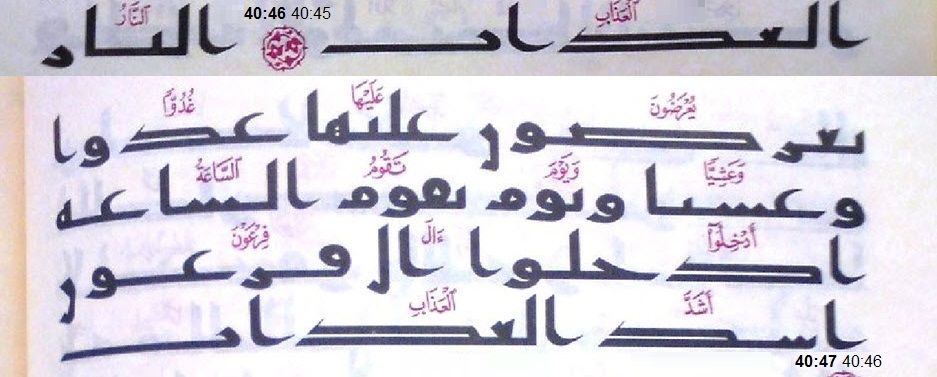 ٱلْعَذَابِ 40:46 40:45 ٱلنَّارُ
العداب النار
يُعْرَضُونَ عَلَيْهَا غُدُوًّا
يعرصون عليها عدوا
وَعَشِيًّا وَيَوْمَ تَقُومُ ٱلسَّاعَةُ
وعسيا ويوم يقوم الساعه
أَدْخِلُوٓا۟ ءَالَ فِرْعَوْنَ
ادحلوا ال فرعون
أَشَدَّ ٱلْعَذَابِ
اسد العداب
40:47 40:46